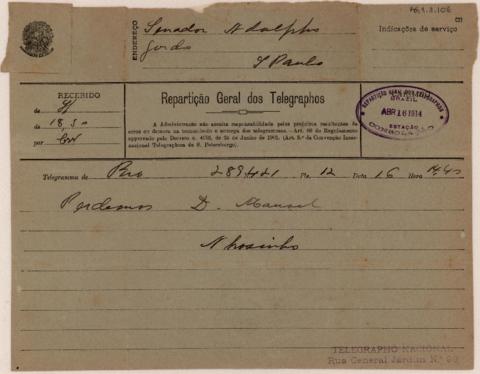 46.1.3.106
(2)
ENDEREÇO
Senador Adolpho
Gordo
S Paulo
Indicações de serviço
RECEBIDO
de
de 18,50
por
Repartição Geral dos Telegraphos
A Administração não assume responsabilidade pelos prejuizos resultantes de
erros ou demora na transmissão e entrega dos telegrammas.—Art. 88 do Regulamento
approvado pelo Decreto n. 4053, de 24 de Junho de 1901. (Art. 3.º da Convenção Inter-
nacional Telegraphica de S. Petersburgo).
BRAZIL
ABR 16 1914
ESTAÇÃO
CONSOLAÇÃO
Telegramma de Rio 289421 Pls. 12 Data 16 Hora
Perdemos D. Manoel
Nhosinho
TELEGRAPHO NACIONAL
Rua General Jardim N.